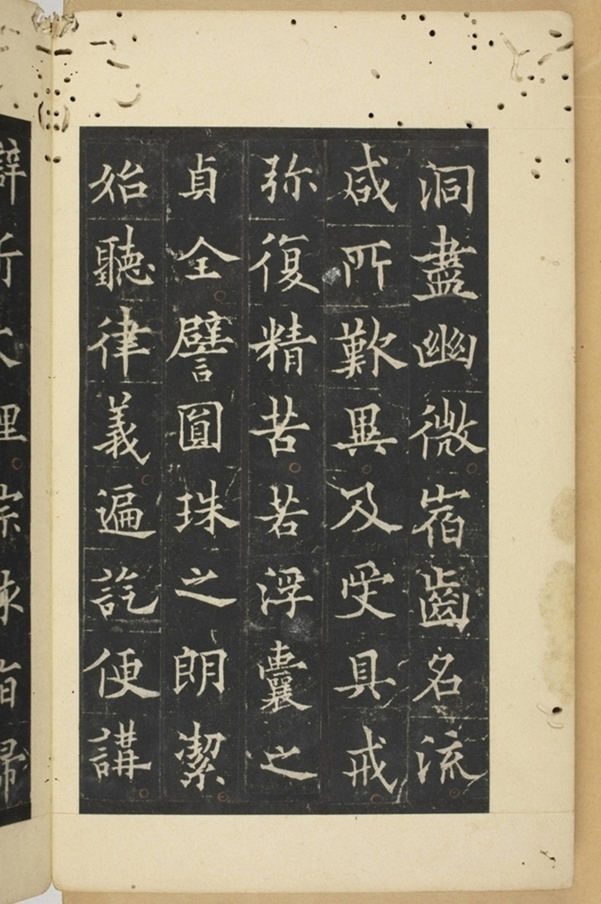 洞盡幽微宿齒名流
咸所歎異及受具戒
弥復精苦若浮囊之
貞全譬圓珠之朗潔
始聽律義遍訖便講
辞
理宗
旨歸